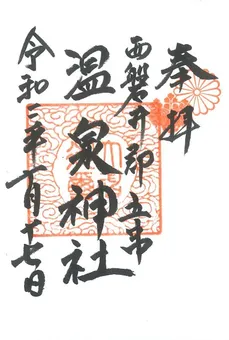 奉拝
西磐井郡五串
温泉神社
令和二年一月十七日